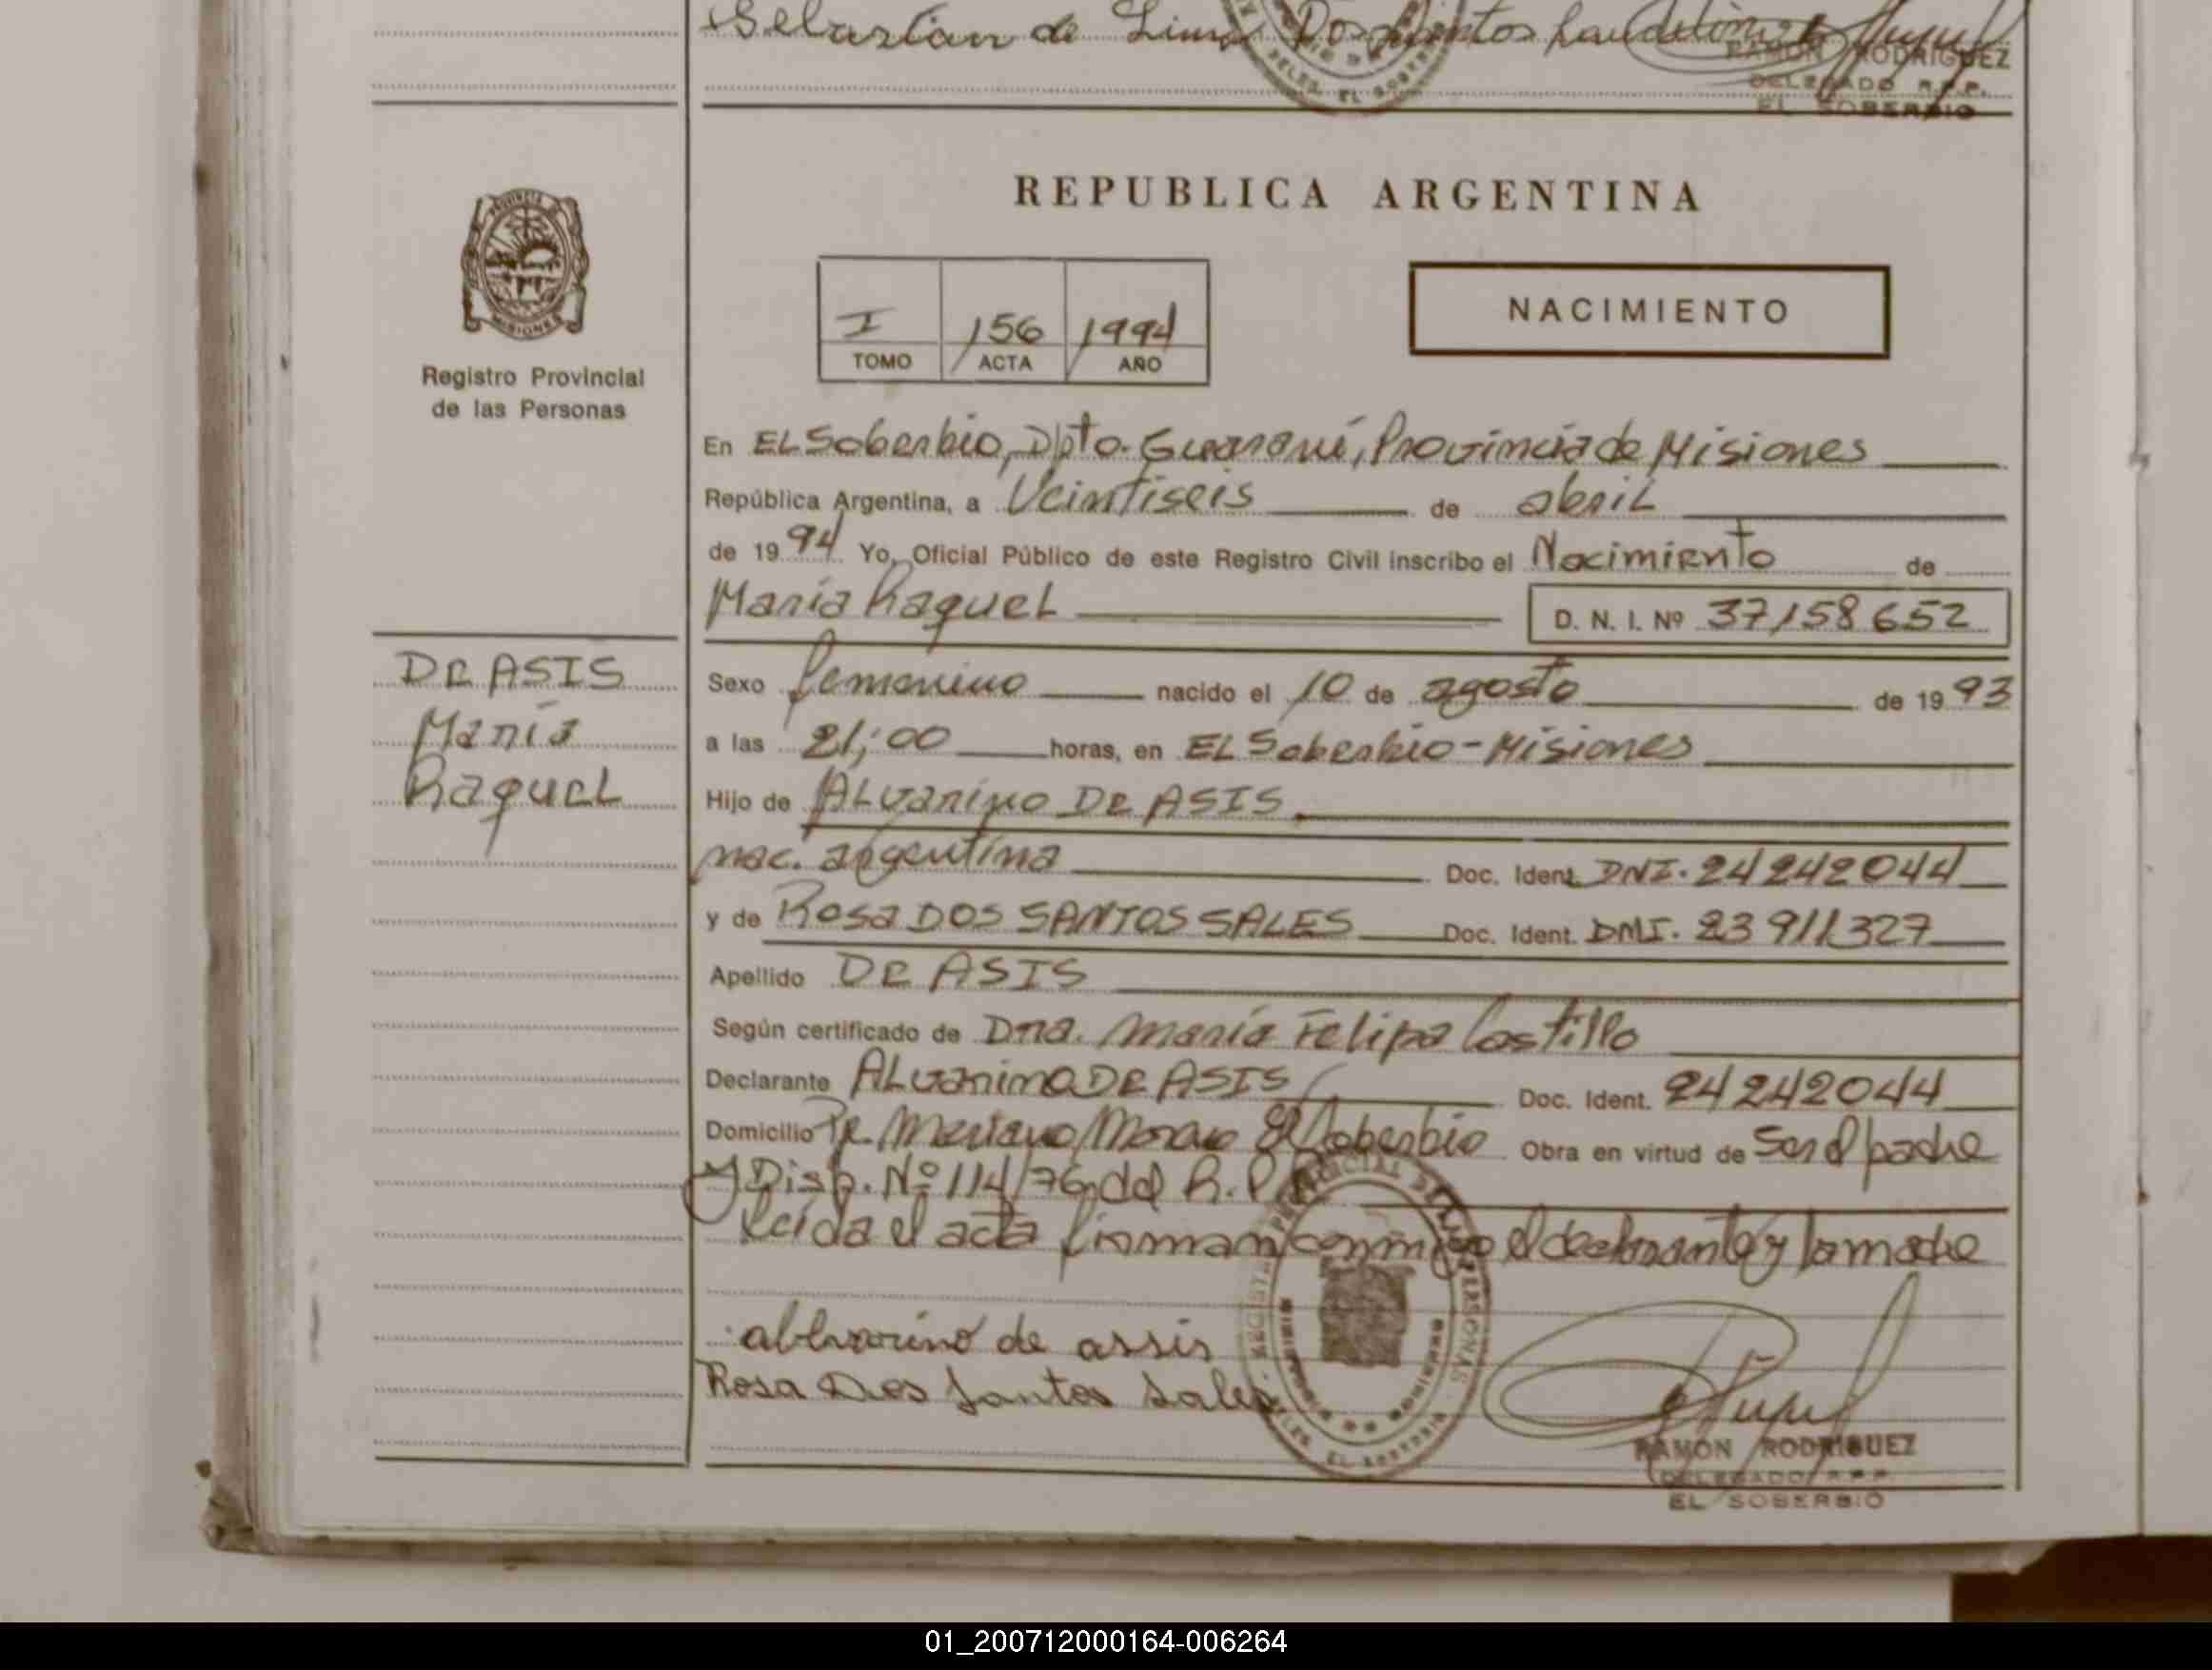 Sebastian de Lima Dos Santos
RAMON RODRIGUEZ
DELEGADO R.P.P.
EL SOBERBIO
PROVINCIA DE
MISIONES
Registro Provincial
de las Personas
REPUBLICA ARGENTINA
I 156 1994
TOMO ACTA AÑO
NACIMIENTO
En EL Soberbio, Dpto. Guaraní, Provincia de Misiones
República Argentina, a Veintiseis de abril
de 1994 Yo, Oficial Público de este Registro Civil inscribo el Nacimiento de
Maria Raquel D. N. I. Nº 37158652
DE ASIS
Maria
Raquel
Sexo femenino nacido el 10 de agosto de 1993
a las 21;00 horas, en EL Soberbio - Misiones
Hijo de ALvarino DE ASIS
nac. argentina Doc. Ident. DNI. 24242044
y de Rosa DOS SANTOS SALES Doc. Ident. DNI. 23911327
Apellido DE ASIS
Según certificado de Dña. María Felipa Castillo
Declarante ALvarino DE ASIS Doc. Ident. 24242044
Domicilio Mariano Moreno El Soberbio Obra en virtud de Ser el padre
y Disp. Nº 114/76 del R.P.P.
Leida el acta firman conmigo el declarante y la madre
albarino de assis
Rosa Dos Santos Sales
RAMON RODRIGUEZ
DELEGADO R.P.P.
EL SOBERBIO
01_200712000164-006264